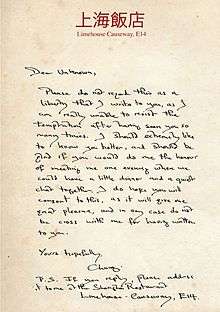 上海飯店
Limehouse Causeway, E14
Dear Unknown,
Please do not regard this as a
liberty that I write to you, as I
am really unable to resist the
temptation after having seen you so
many times. I should extremely like
to know you better, and should be
glad if you would do me the honour
of meeting me one evening when we
could have a little dinner and a quiet
chat together. I do hope you will
consent to this, as it will give me
great pleasure, and in any case do not
be cross with me for having written
to you.
Yours hopefully,
Chang
P.S. If you reply, please address
it to me at the Shanghai Restaurant
Limehouse-Causeway, E14.